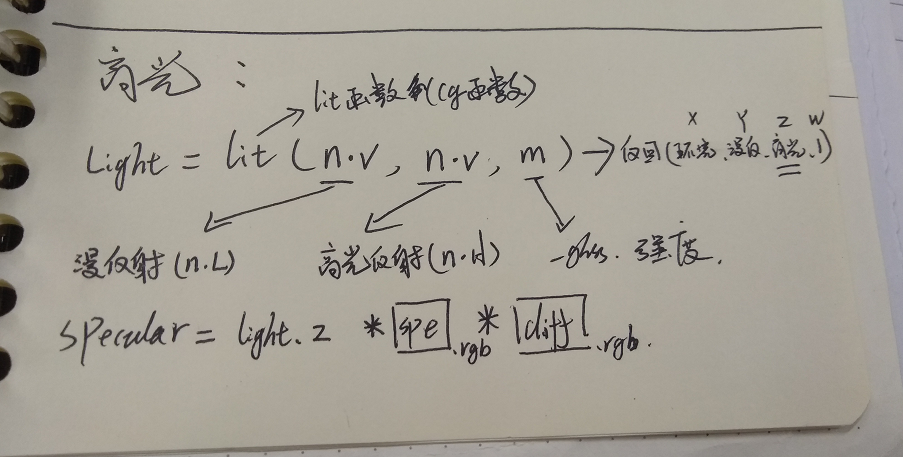 高光：
lit函数解(cg函数)
X Y Z W
Light = lit (n·v, n·v, m) → 返回(环境、漫反、高光、1)
漫反射(n·L) 高光反射(n·H) _gloss. 强度.
specular = light.z * spe.rgb * diff.rgb.